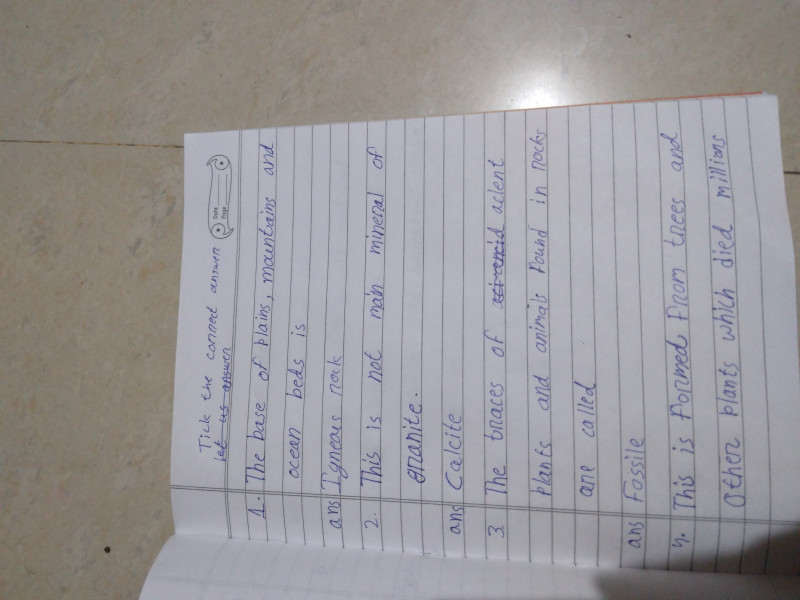 Tick the correct answer
Date
Page
let us answer
1. The base of plains, mountains and
ocean beds is
ans Igneous rock
2. This is not main mineral of
granite.
ans Calcite
3 The traces of acient
plants and animals found in rocks
are called
ans Fossile
4. This is formed from trees and
Other plants which died millions